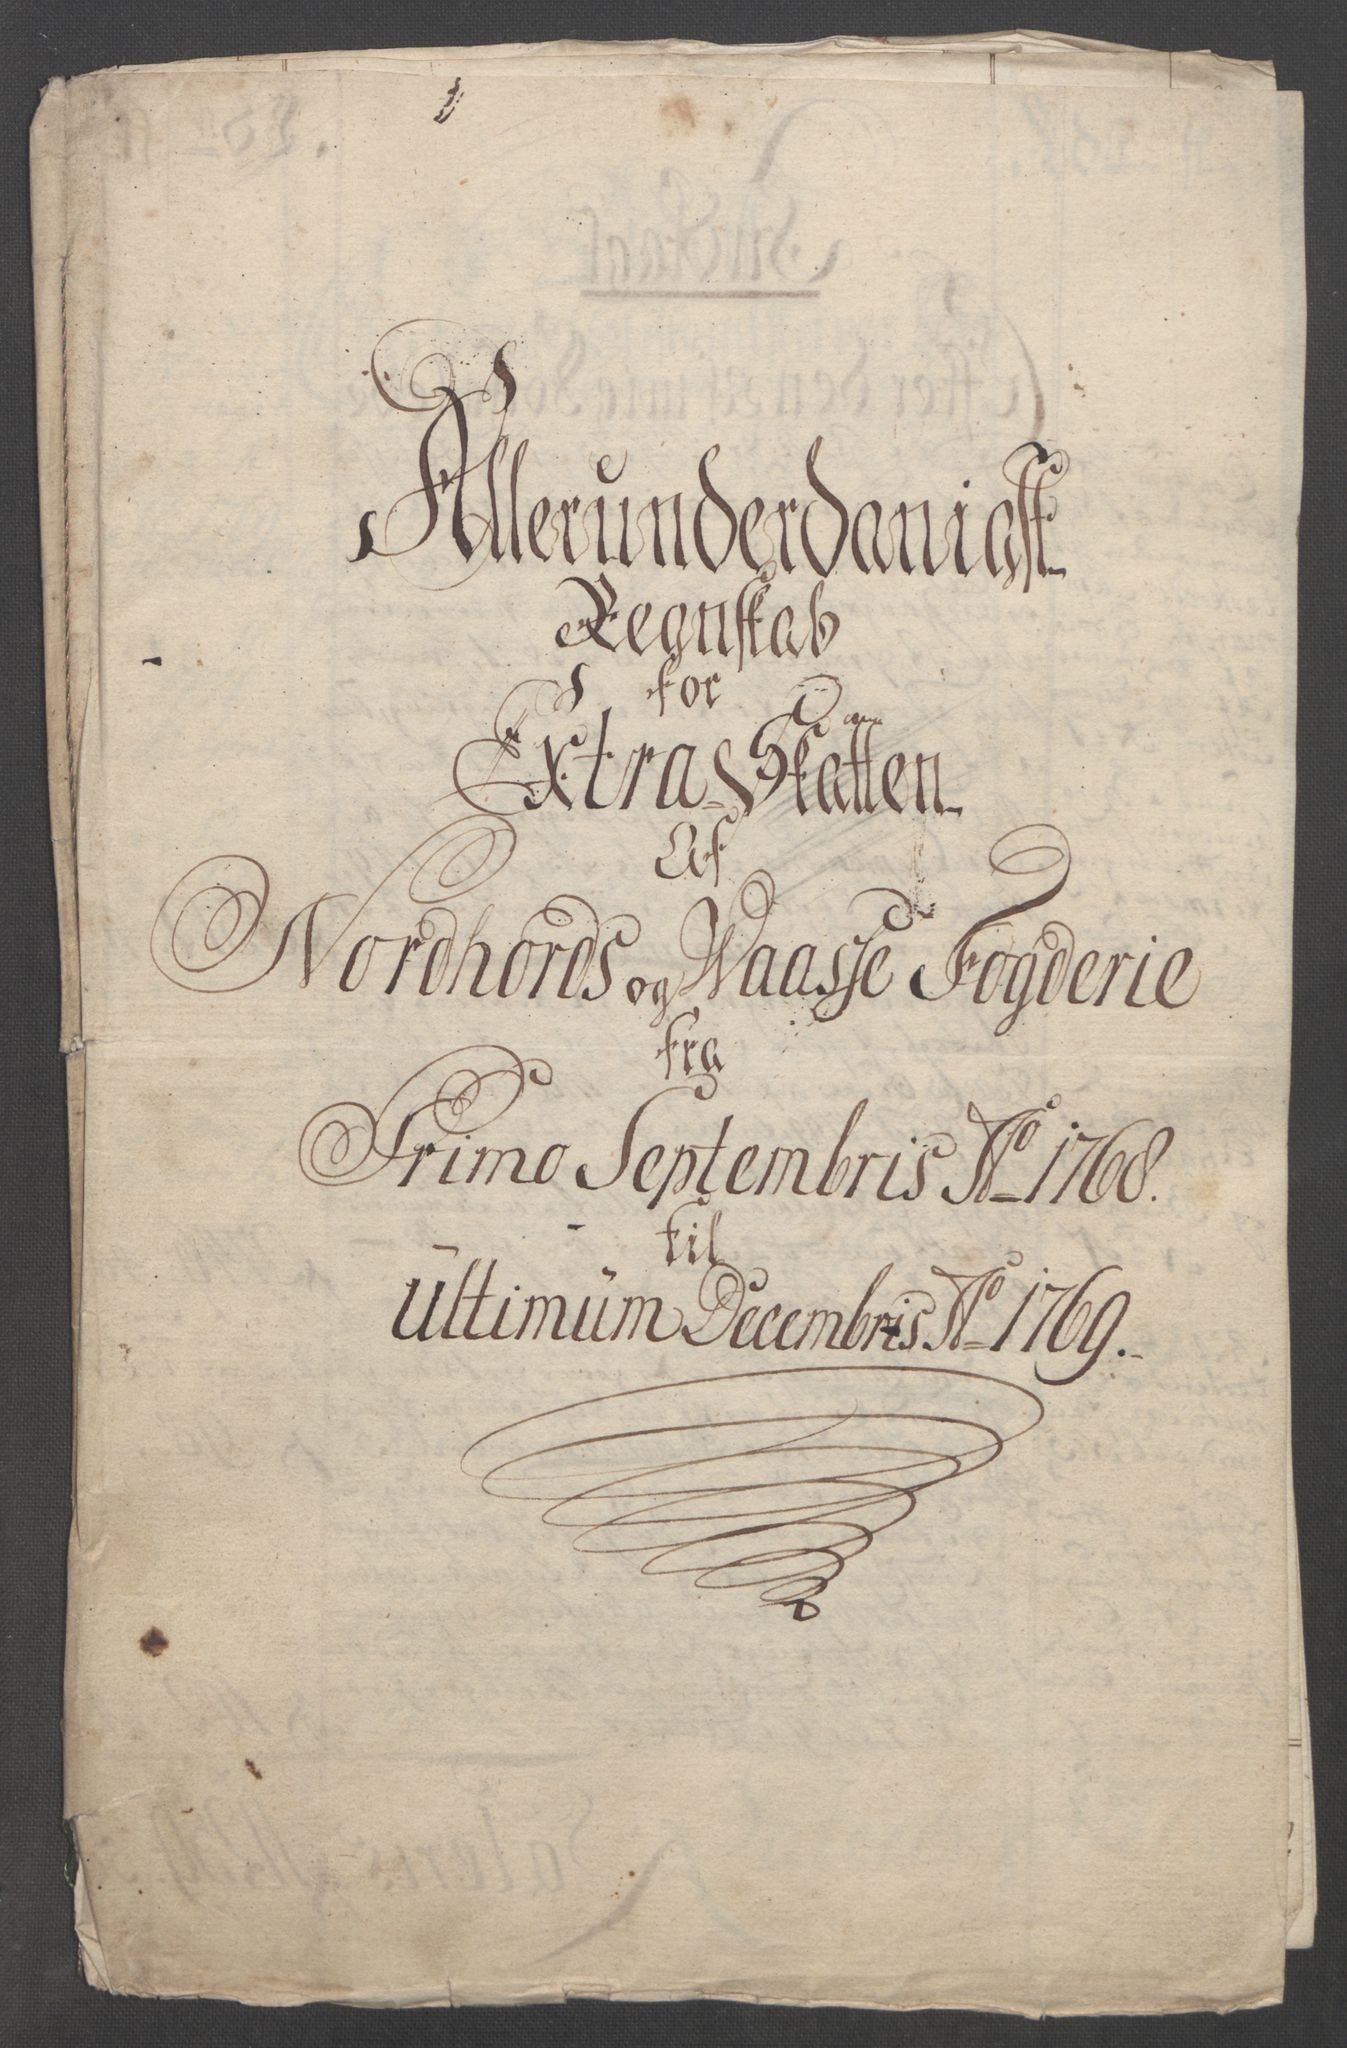 Allerunderdanigst
Regnskab
for
Extra Skatten
Af
Nordhords og Waasse Fogderie
fra
Primo Septembris Ao 1768.
til
Ultimum Decembris Ao 1769.